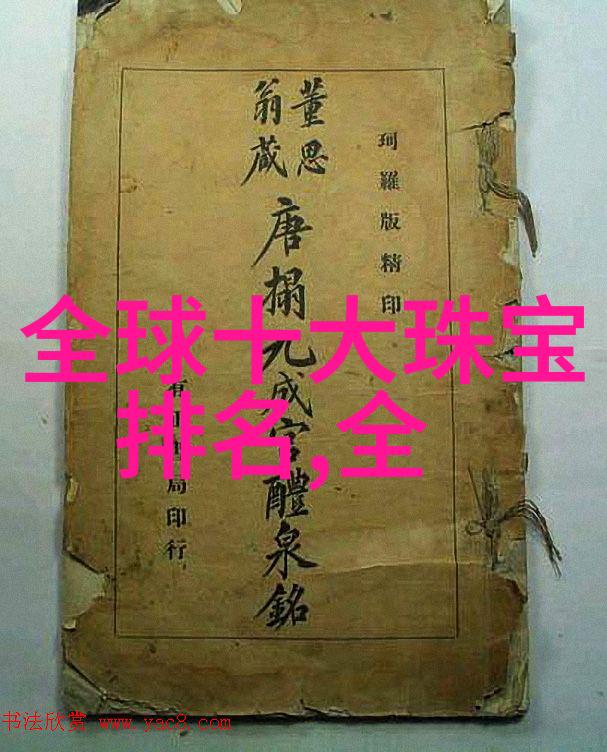 珂羅版精印
董思
翁藏
唐搨九成宮醴泉銘
有正書局印行
全球十大珠宝
排名,全
书法欣赏 www.yac8.com